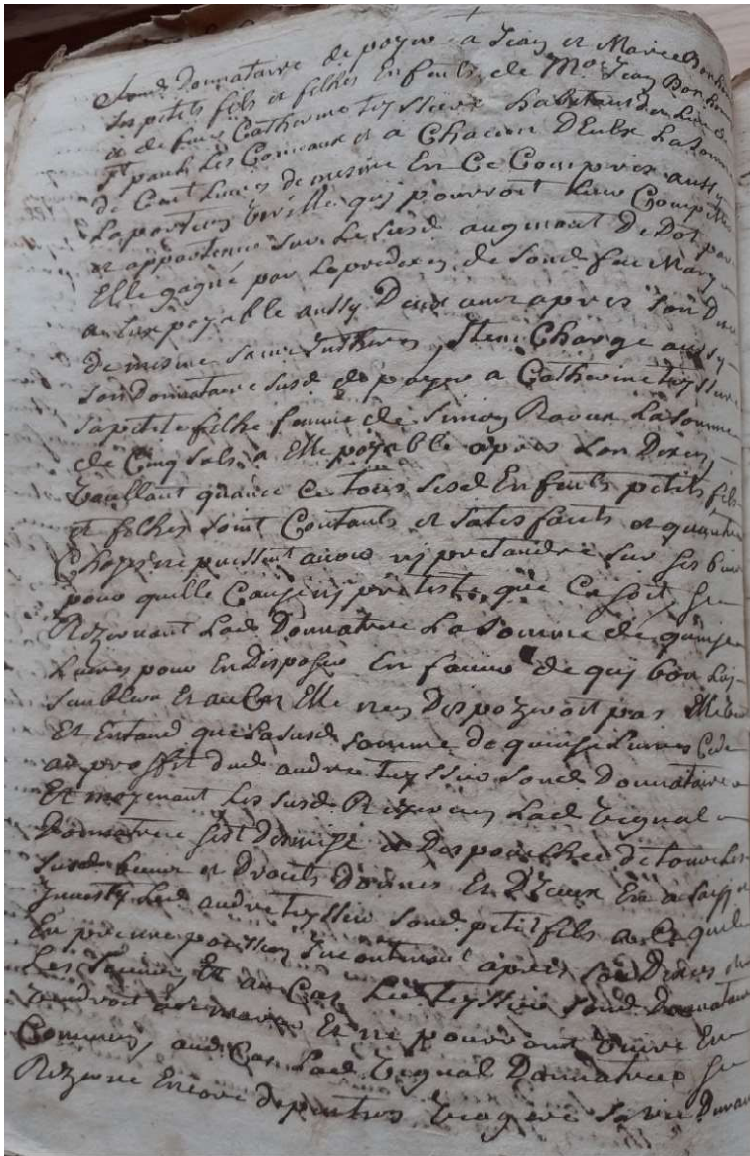 sond. Donnataire de payer a Jean et Marie Bonhom
ses petits fils et filhes Enfants de Me. Jean Bonhom
et de feue Catherine teyssiere habitans du lieu de
St. paul Les et a Chacun D'Eulx La somme
de Cent Livres de mesme En Ce Compris aussy
La portion virille quj pourroit Leur Compéter
et appartenir sur Le susd. augmant De Dot par
Elle gagné par Le predeces de sond. feu Mary
payable aussy Deux ans apres son D
De mesme sans Interes, Item Charge aussy
son donnataire susd. de payer a Catherine teyssiere
sa petite filhe femme de Simon La somme
de Cinq sols a Elle payable apres son Deces,
Voullant quavec ce tous sesd. Enfants petits fils
et filhes soint Contants et satisfaits et quautre
Chose ne puissent avoir nj pretandre sur ses biens
pour quelle Cause nj pretexte que Ce soit, se
Rezervant Lad. Donnatrice La somme de quinze
Livres pour En Disposer En faveur de quj bon luy
samblera Et au Cas Elle nen Dispozeroit pas Elle veut
Et Entand que La susd. somme de quinse Livres Cede
au proffit dud. andre teyssier sond. Donnataire
Et moyenant Les susd. Rezerves Lad. vignal
Donnatrice sest Demize et Despoulhée de tous les
susd. biens et Droits Donnés Et D'Iceux En a saisy et
Investy Led. andre teyssier sond. petit fils
En prenne possession Incontinant apres son Deces
Les Et au Cas Led. teyssier sond. Donnataire
viendroit a se marier Et ne pourroient vivre En
Commun, aud. Cas Lad. vignal Donnatrice se
Rezerve Encore de pention viagere sa vie Durant